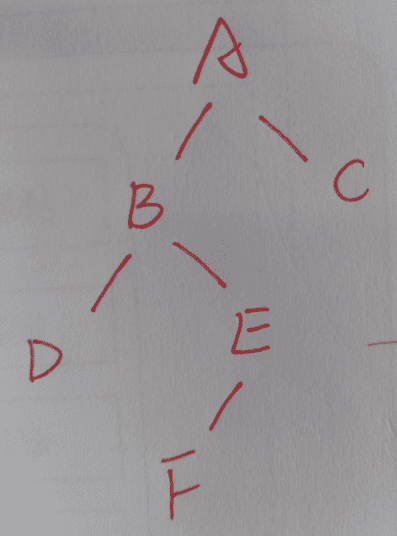 A
B
C
D
E
F